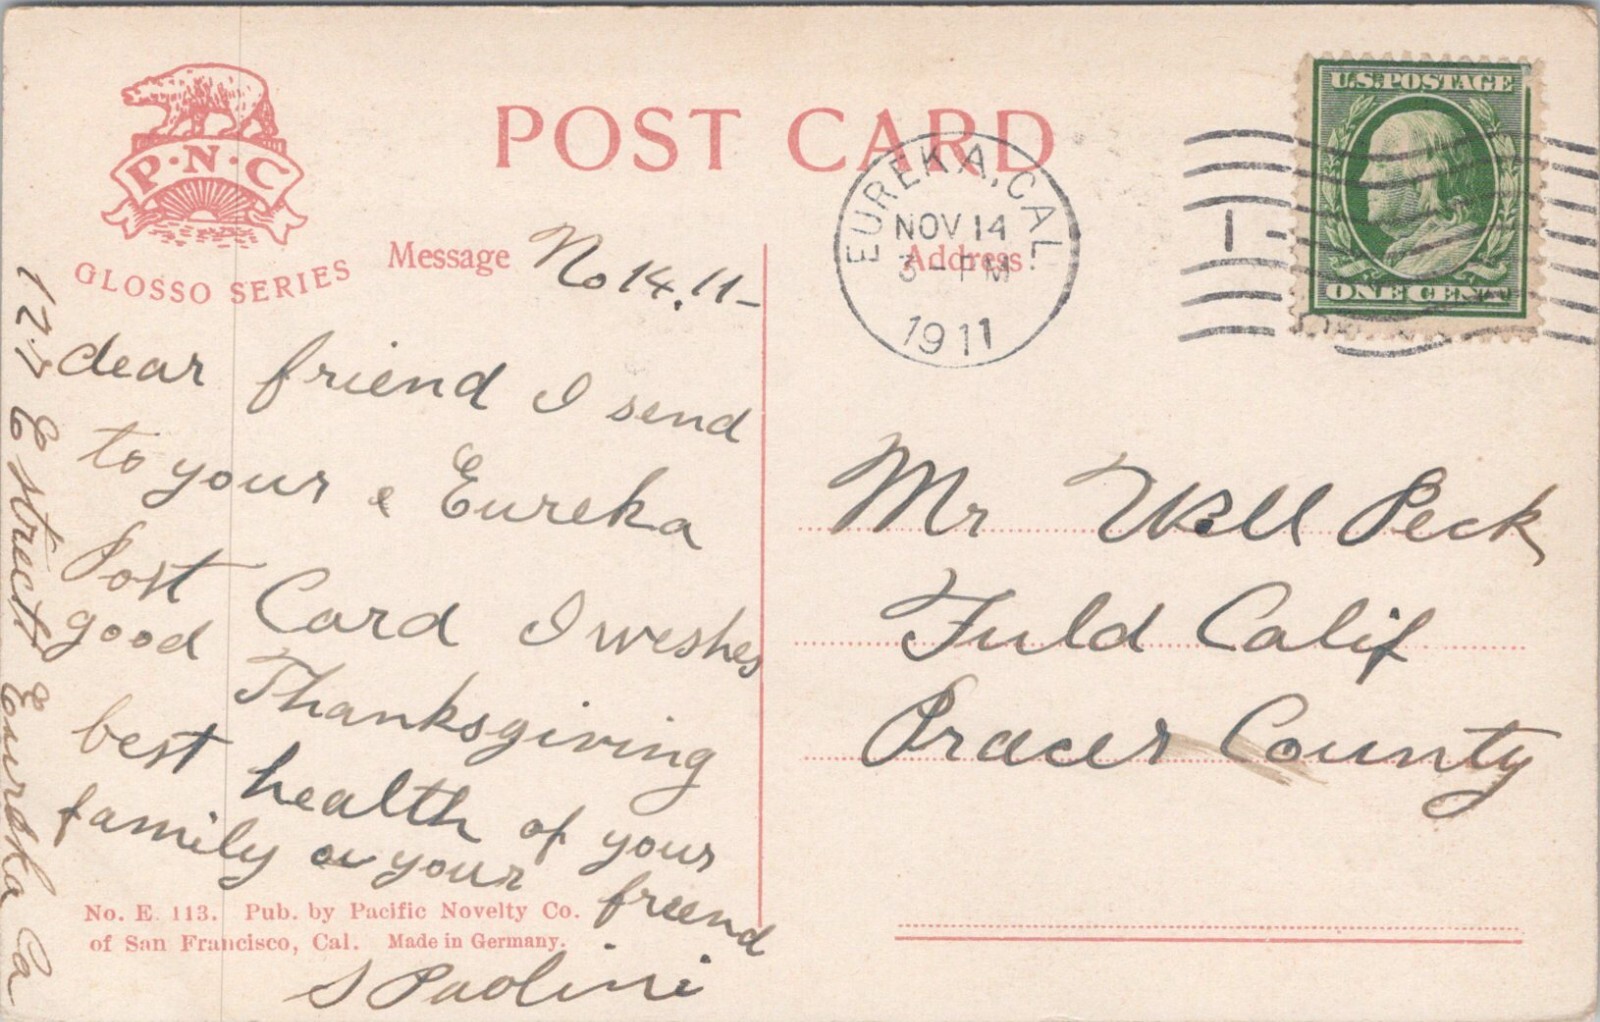 P·N·C
GLOSSO SERIES
POST CARD
Message
No 14.11-
dear friend I send
to your & Eureka
Post Card I weshes
good Thanksgiving
best health of your
family a your freend
S Paolini
127 E street Eureka Ca
No. E. 113. Pub. by Pacific Novelty Co.
of San Francisco, Cal. Made in Germany.
EUREKA, CAL.
NOV 14
3 - PM
1911
Address
1
U.S. POSTAGE
ONE CENT
Mr Will Peck
Fuld Calif
Pracer County